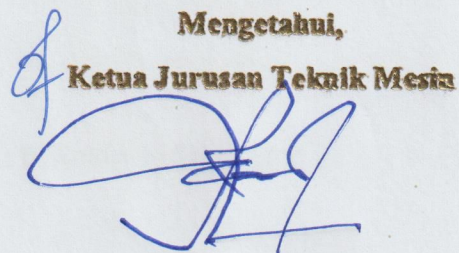 Mengetahui,
Ketua Jurusan Teknik Mesin